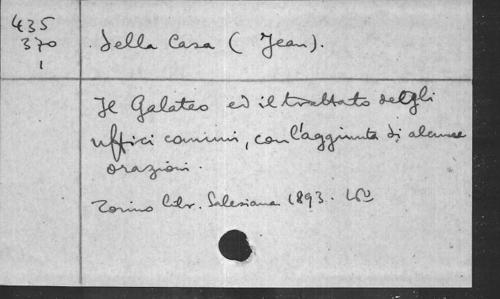 435
370
1
Della Casa (Jean).
Il Galateo ed il trattato degli
uffici comuni, con l'aggiunta di alcune
orazioni.
Torino libr. Salesiana 1893.